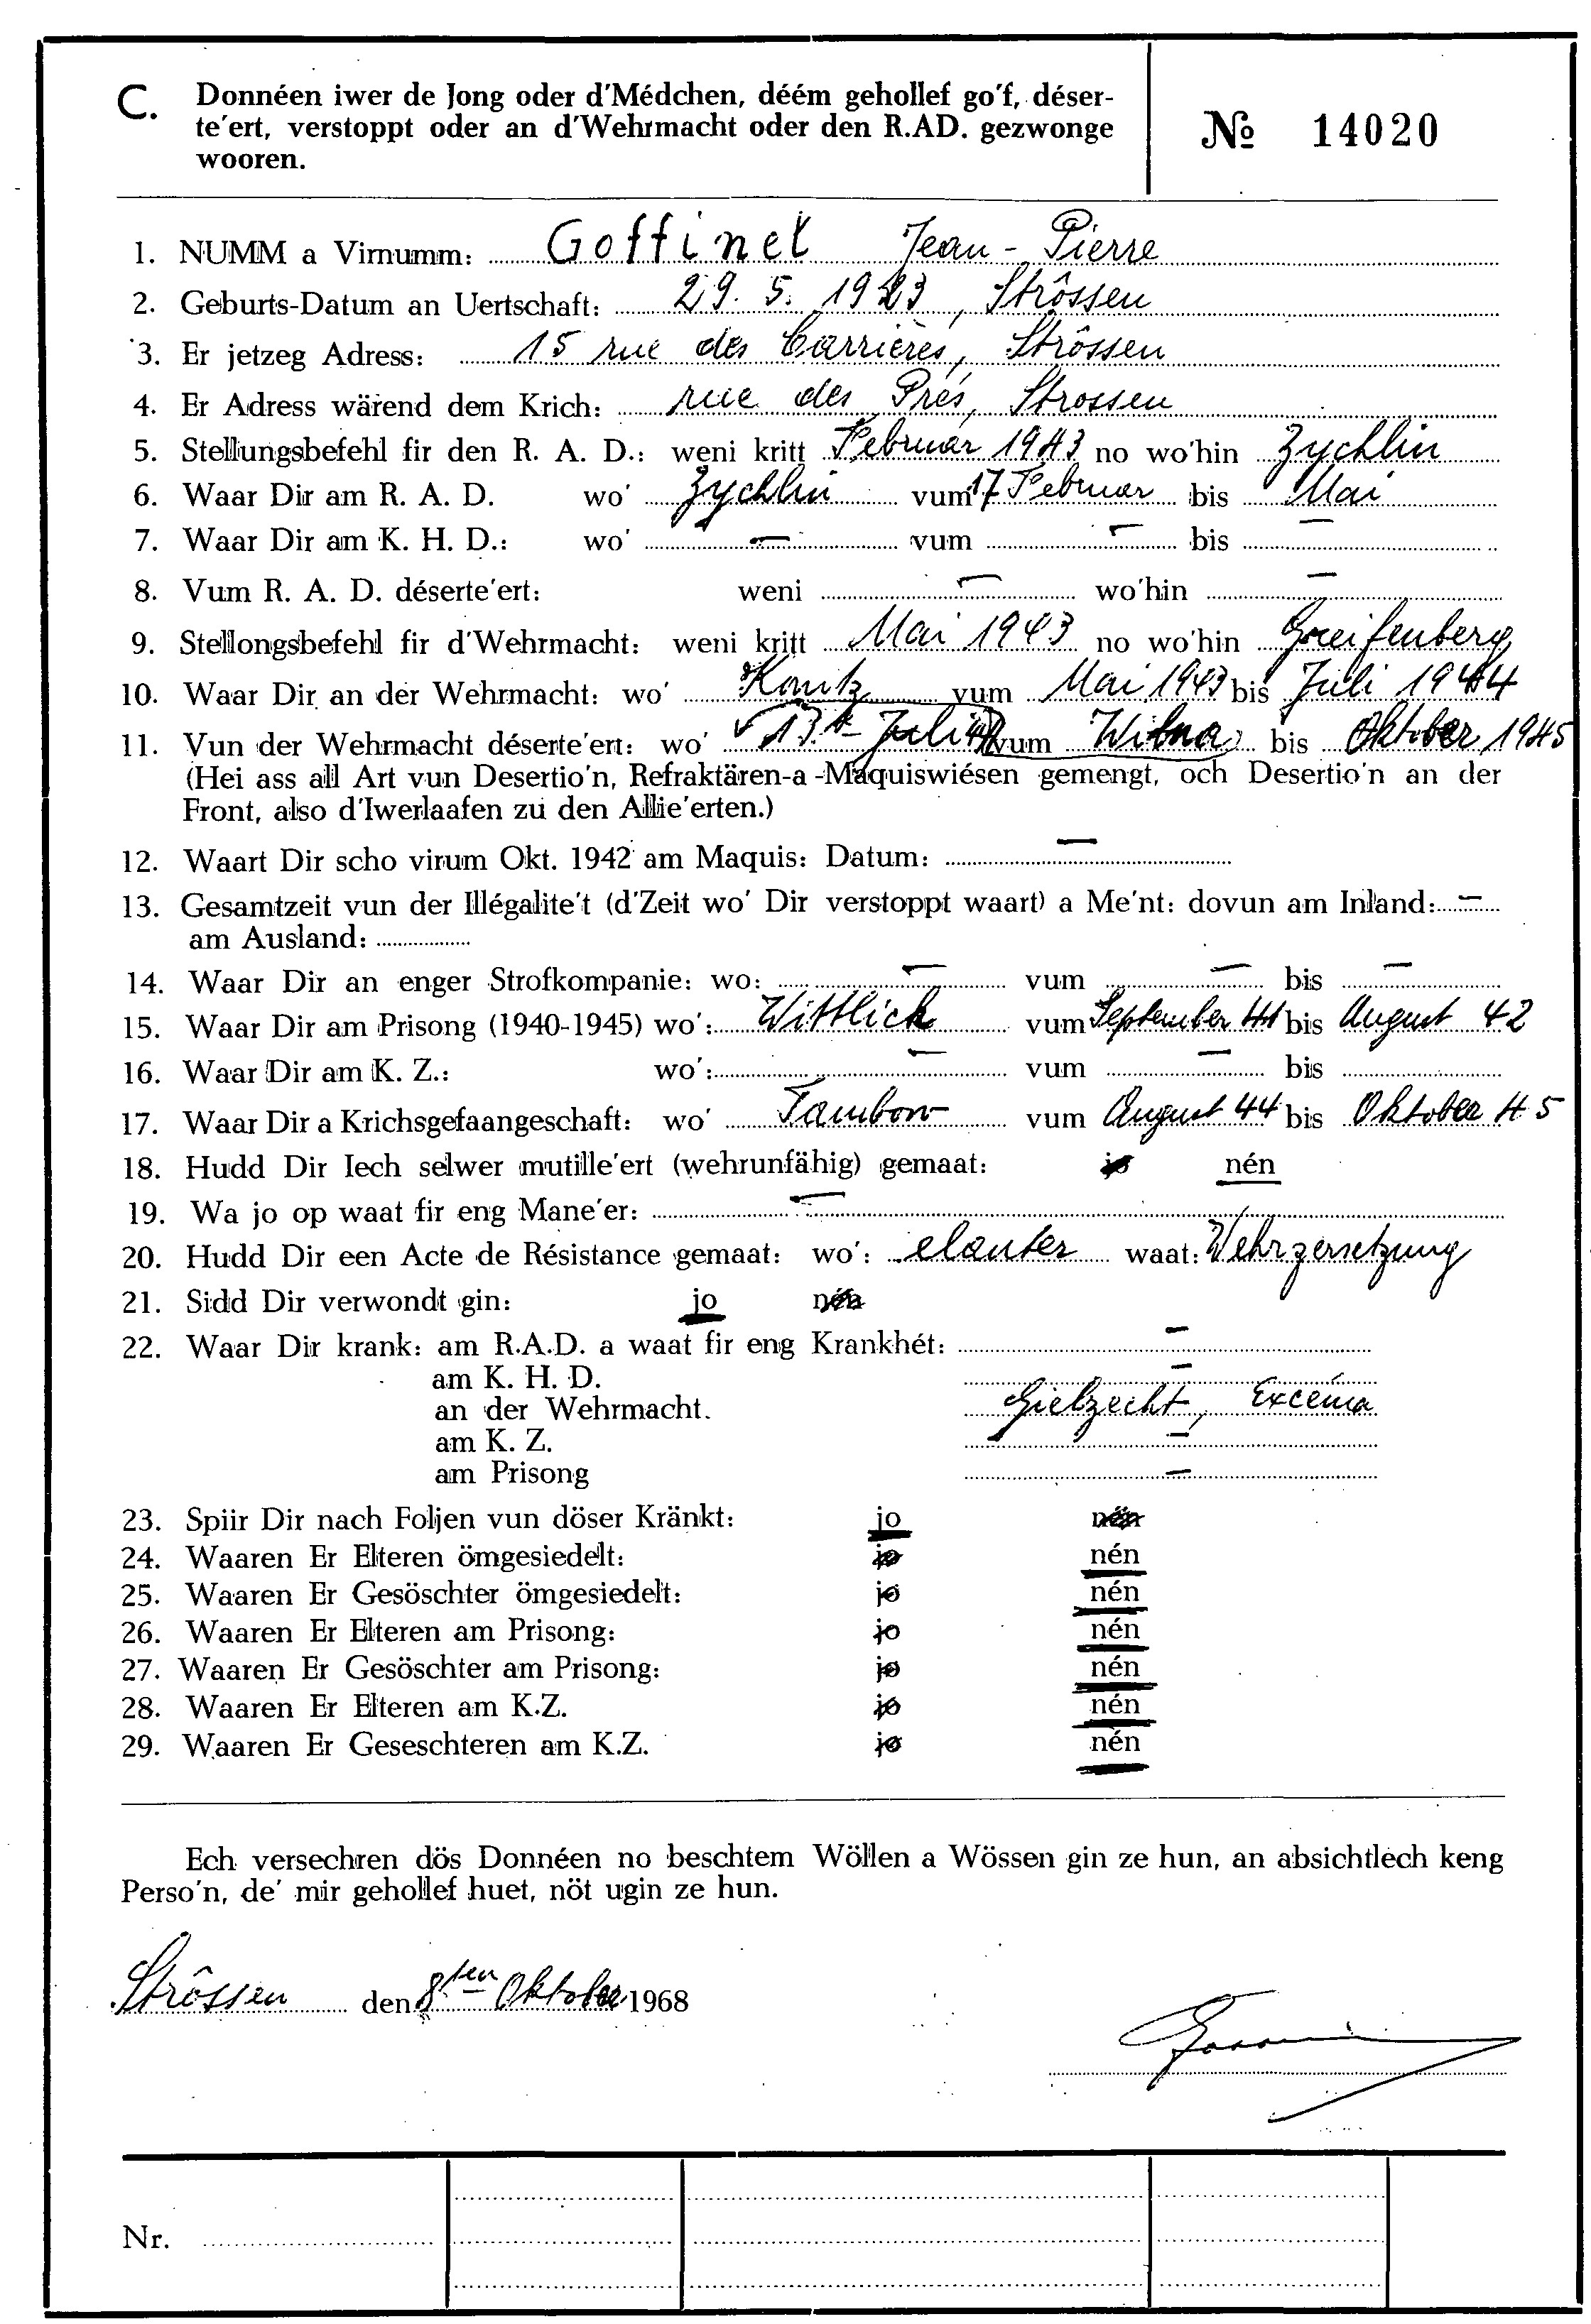 C. Donnéen iwer de Jong oder d'Médchen, déém gehollef go'f, déser-
te'ert, verstoppt oder an d'Wehrmacht oder den R.AD. gezwonge
wooren.
№ 14020
1. NUMM a Virnumm: Goffinet Jean-Pierre
2. Geburts-Datum an Uertschaft: 29. 5. 1923, Strôssen
3. Er jetzeg Adress: 15 rue des Carrières, Strôssen
4. Er Adress wärend dem Krich: rue des Prés, Strossen
5. Stellungsbefehl fir den R. A. D.: weni kritt Februar 1943 no wo'hin Zychlin
6. Waar Dir am R. A. D. wo' Zychlin vum 17 Februar bis Mai
7. Waar Dir am K. H. D.: wo' — vum — bis —
8. Vum R. A. D. déserte'ert: weni — wo'hin —
9. Stellongsbefehl fir d'Wehrmacht: weni kritt Mai 1943 no wo'hin Greifenberg
10. Waar Dir an der Wehrmacht: wo' Konitz vum Mai 1943 bis Juli 1944
11. Vun der Wehrmacht déserte'ert: wo' 13. Juli 44 vum Wilna bis Oktober 1945
(Hei ass all Art vun Desertio'n, Refraktären-a -Maquiswiésen gemengt, och Desertio'n an der
Front, also d'Iwerlaafen zu den Allie'erten.)
12. Waart Dir scho virum Okt. 1942 am Maquis: Datum: —
13. Gesamtzeit vun der Illégalite't (d'Zeit wo' Dir verstoppt waart) a Me'nt: dovun am Inland: —
am Ausland:
14. Waar Dir an enger Strofkompanie: wo: — vum — bis —
15. Waar Dir am Prisong (1940-1945) wo': Wittlich vum September 41 bis August 42
16. Waar Dir am K. Z.: wo': — vum — bis
17. Waar Dir a Krichsgefaangeschaft: wo' Tambow vum August 44 bis Oktober 45
18. Hudd Dir Iech selwer mutille'ert (wehrunfähig) gemaat: jo nén
19. Wa jo op waat fir eng Mane'er: —
20. Hudd Dir een Acte de Résistance gemaat: wo': elauter waat: Wehrzersetzung
21. Sidd Dir verwondt gin: jo nén
22. Waar Dir krank: am R.A.D. a waat fir eng Krankhét: —
am K. H. D. —
an der Wehrmacht. Gielzecht, Excéma
am K. Z. —
am Prisong —
23. Spiir Dir nach Foljen vun döser Kränkt: jo nén
24. Waaren Er Elteren ömgesiedelt: jo nén
25. Waaren Er Gesöschter ömgesiedelt: jo nén
26. Waaren Er Elteren am Prisong: jo nén
27. Waaren Er Gesöschter am Prisong: jo nén
28. Waaren Er Elteren am K.Z. jo nén
29. Waaren Er Geseschteren am K.Z. jo nén
Ech versechren dös Donnéen no beschtem Wöllen a Wössen gin ze hun, an absichtlech keng
Perso'n, de' mir gehollef huet, nöt ugin ze hun.
Strôssen den 8ten Oktober 1968
Nr.